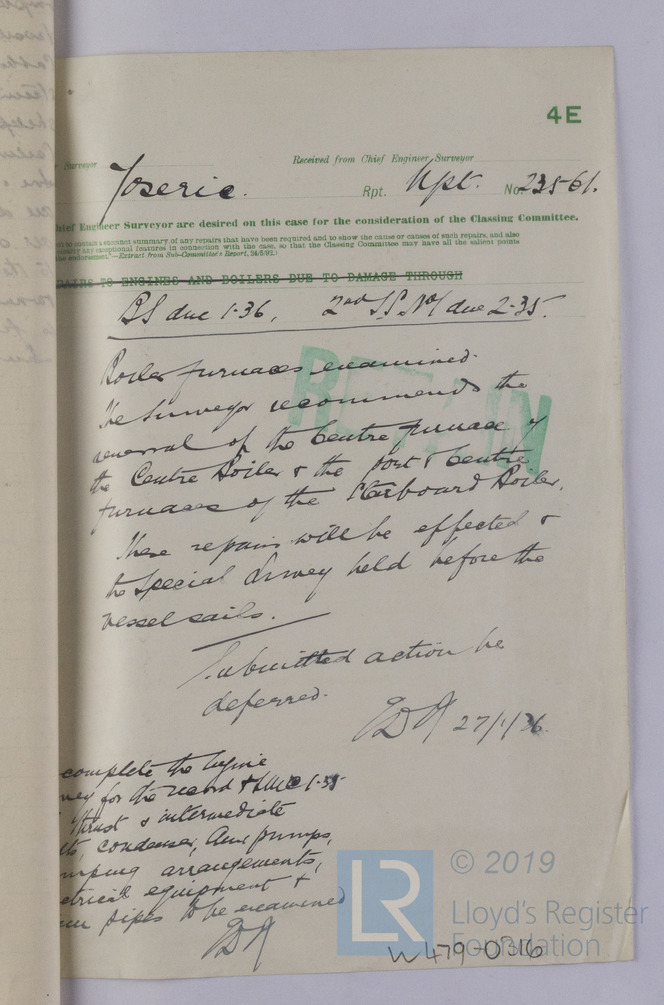 4E
Surveyor Received from Chief Engineer Surveyor
Foseric. Rpt. Npt. No. 23561.
hief Engineer Surveyor are desired on this case for the consideration of the Classing Committee.
to contain a succinct summary of any repairs that have been required and to show the cause or causes of such repairs, and also
any exceptional features in connection with the case, so that the Classing Committee may have all the salient points
the endorsement.—Extract from Sub-Committee's Report,
PAIRS TO ENGINES AND BOILERS DUE TO DAMAGE THROUGH
BS due 1·36, 2nd due 2·35.
Boiler furnaces examined.
The Surveyor recommends the
renewal of the Centre furnace of
the Centre Boiler & the port & Centre
furnaces of the Starboard Boiler.
These repairs will be effected &
the Special Survey held before the
vessel sails.
Submitted action be
deferred.
27/1/36
complete the Engine
for the record + LMC 1·35
thrust & intermediate
condenser, Aux pumps,
arrangements,
equipment &
pipes to be examined
LR
© 2019
Lloyd's Register
Foundation
W479-0316